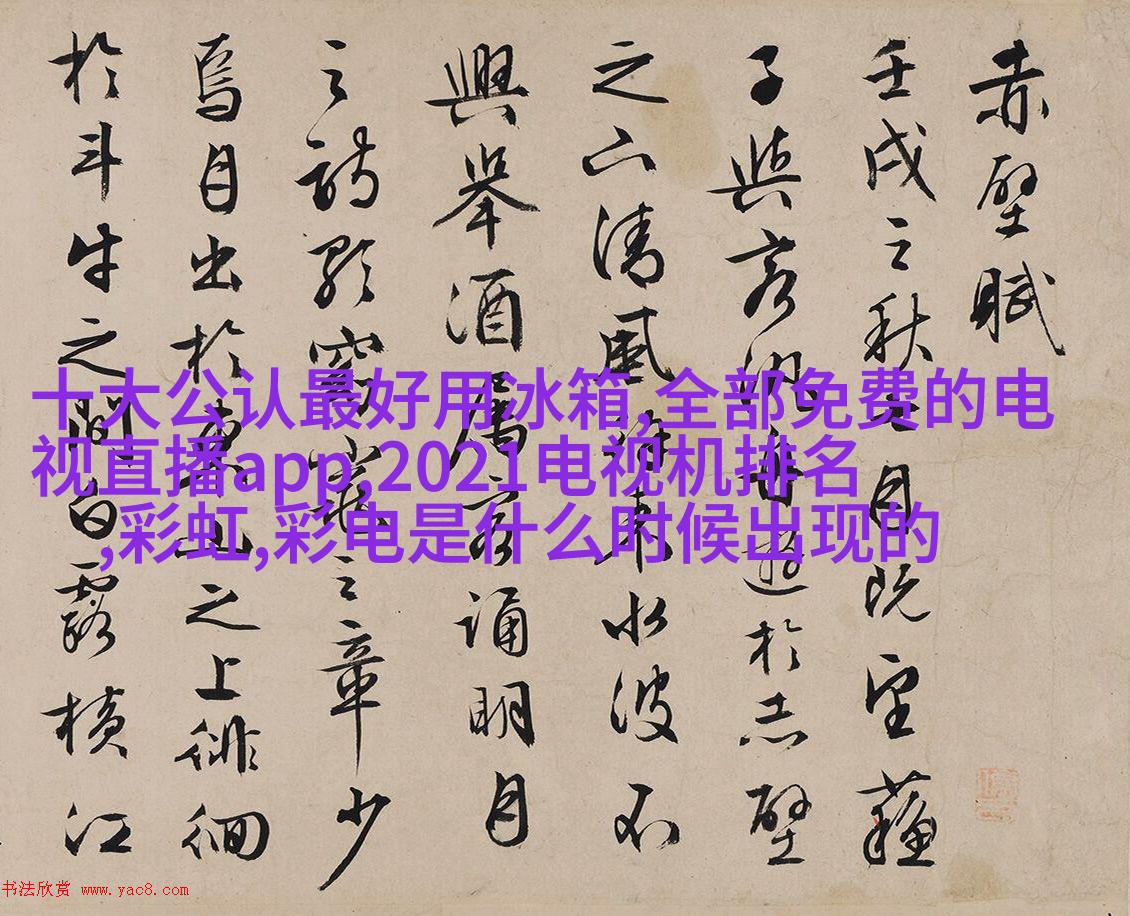 赤壁賦
壬戌之秋七月既望蘇
子與客泛舟遊於赤壁
之下清風徐來水波不
興舉酒屬客誦明月
之詩歌窈窕之章少
焉月出於東山之上徘徊
於斗牛之間白露橫江
十大公认最好用冰箱,全部免费的电
视直播app,2021电视机排名
,彩虹,彩电是什么时候出现的
书法欣赏 www.yac8.com